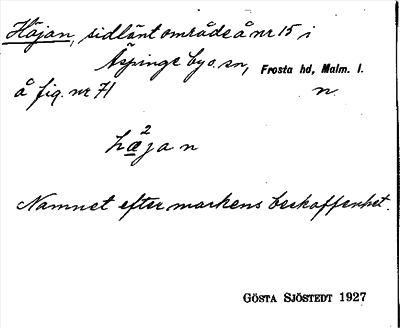 Häjan, sidlänt område å nr 15 i
Äspinge by o. sn, Frosta hd, Malm. l.
å fig. nr 71 n.
hæ²jan
Namnet efter markens beskaffenhet.
GÖSTA SJÖSTEDT 1927